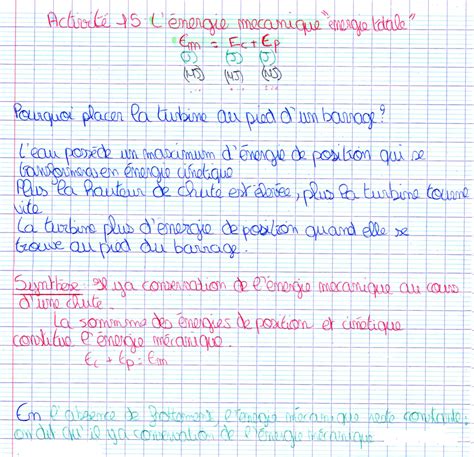 Activité 15 L'énergie mecanique "energie totale"
Em = Ec + Ep
(J) (J) (J)
(MJ) (MJ) (MJ)
Pourquoi placer la turbine au pied d'un barrage?
L'eau possède un maximum d'énergie de position qui se
transformera en énergie cinétique
Plus la hauteur de chute est élevée, plus la turbine tourne
vite.
La turbine plus d'energie de position quand elle se
trouve au pied du barrage.
Synthèse: Il y a conservation de l'énergie mecanique au cours
d'une chute.
La sommme des énergies de position et cinétique
constitue l'énergie mécanique.
Ec + Ep = Em
En l'absence de frottement, l'énergie mécanique reste constante:
on dit qu'il y a conservation de l'énergie mécanique